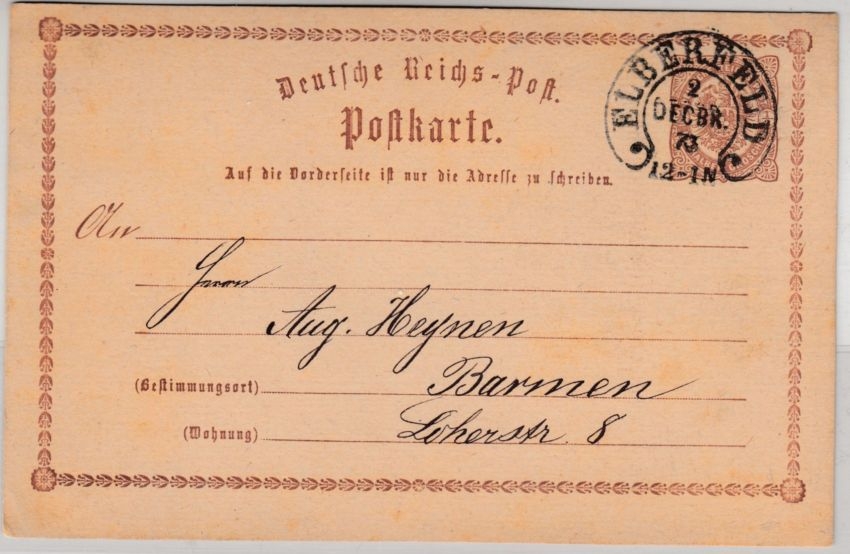 Deutsche Reichs-Post.
Postkarte.
Auf die Vorderseite ist nur die Adresse zu schreiben.
ELBERFELD
2
DECBR.
73
12-1N
An
Herrn
Aug. Heynen
(Bestimmungsort) Barmen
(Wohnung) Loherstr. 8